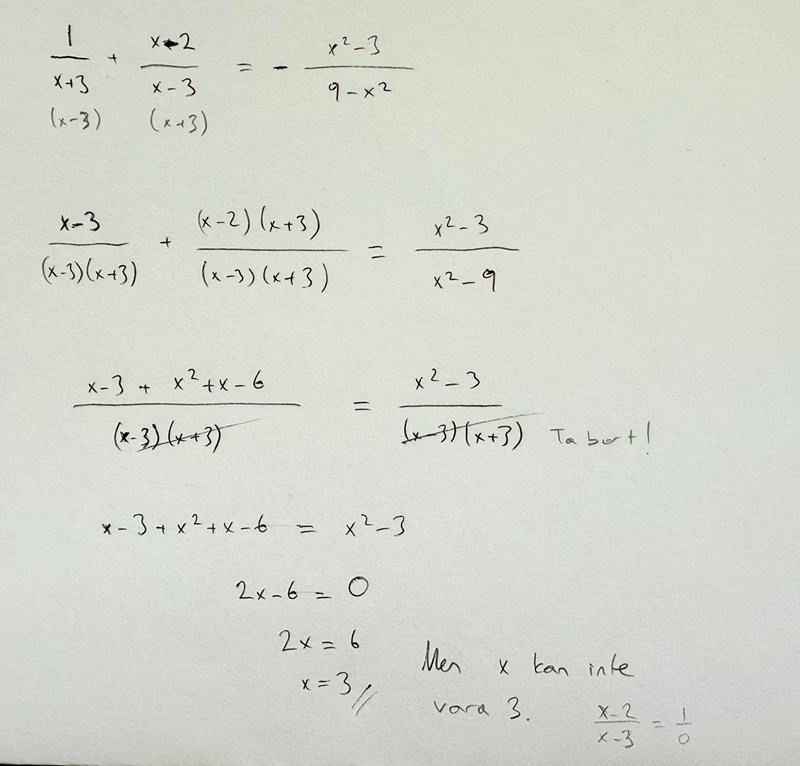 1/(x+3) + (x-2)/(x-3) = - (x²-3)/(9-x²)
(x-3) (x+3)
(x-3)/((x-3)(x+3)) + ((x-2)(x+3))/((x-3)(x+3)) = (x²-3)/(x²-9)
(x-3 + x²+x-6)/((x-3)(x+3)) = (x²-3)/((x-3)(x+3)) Ta bort!
x-3+x²+x-6 = x²-3
2x-6 = 0
2x = 6
x = 3 //
Men x kan inte
vara 3. (x-2)/(x-3) = 1/0